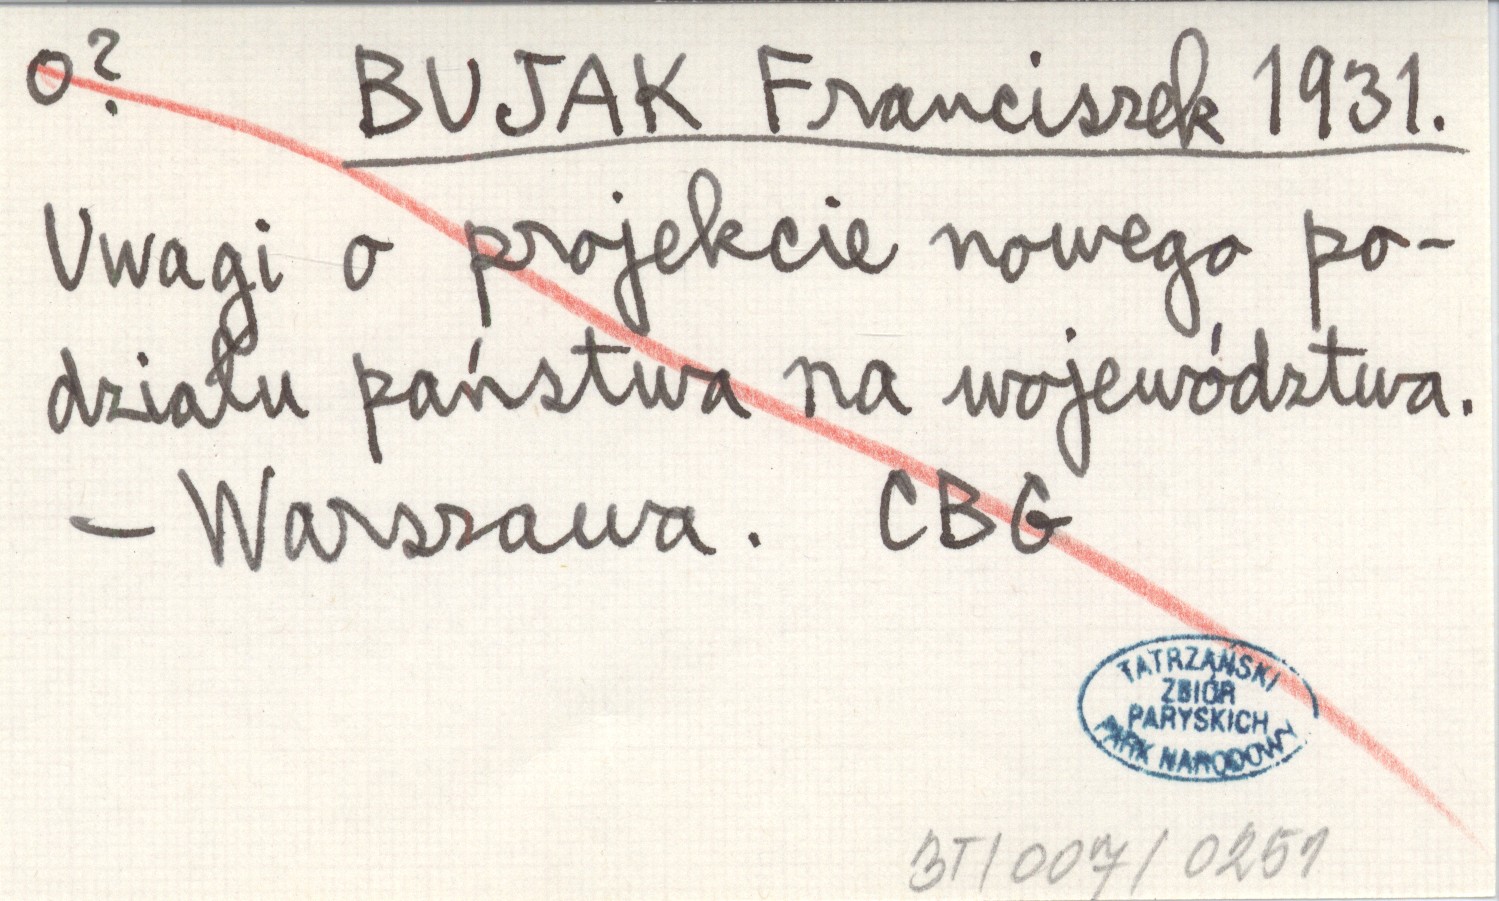 o? BUJAK Franciszek 1931.
Uwagi o projekcie nowego po-
działu państwa na województwa.
— Warszawa. CBG
TATRZAŃSKI
ZBIÓR
PARYSKICH
PARK NARODOWY
BT/007/0251